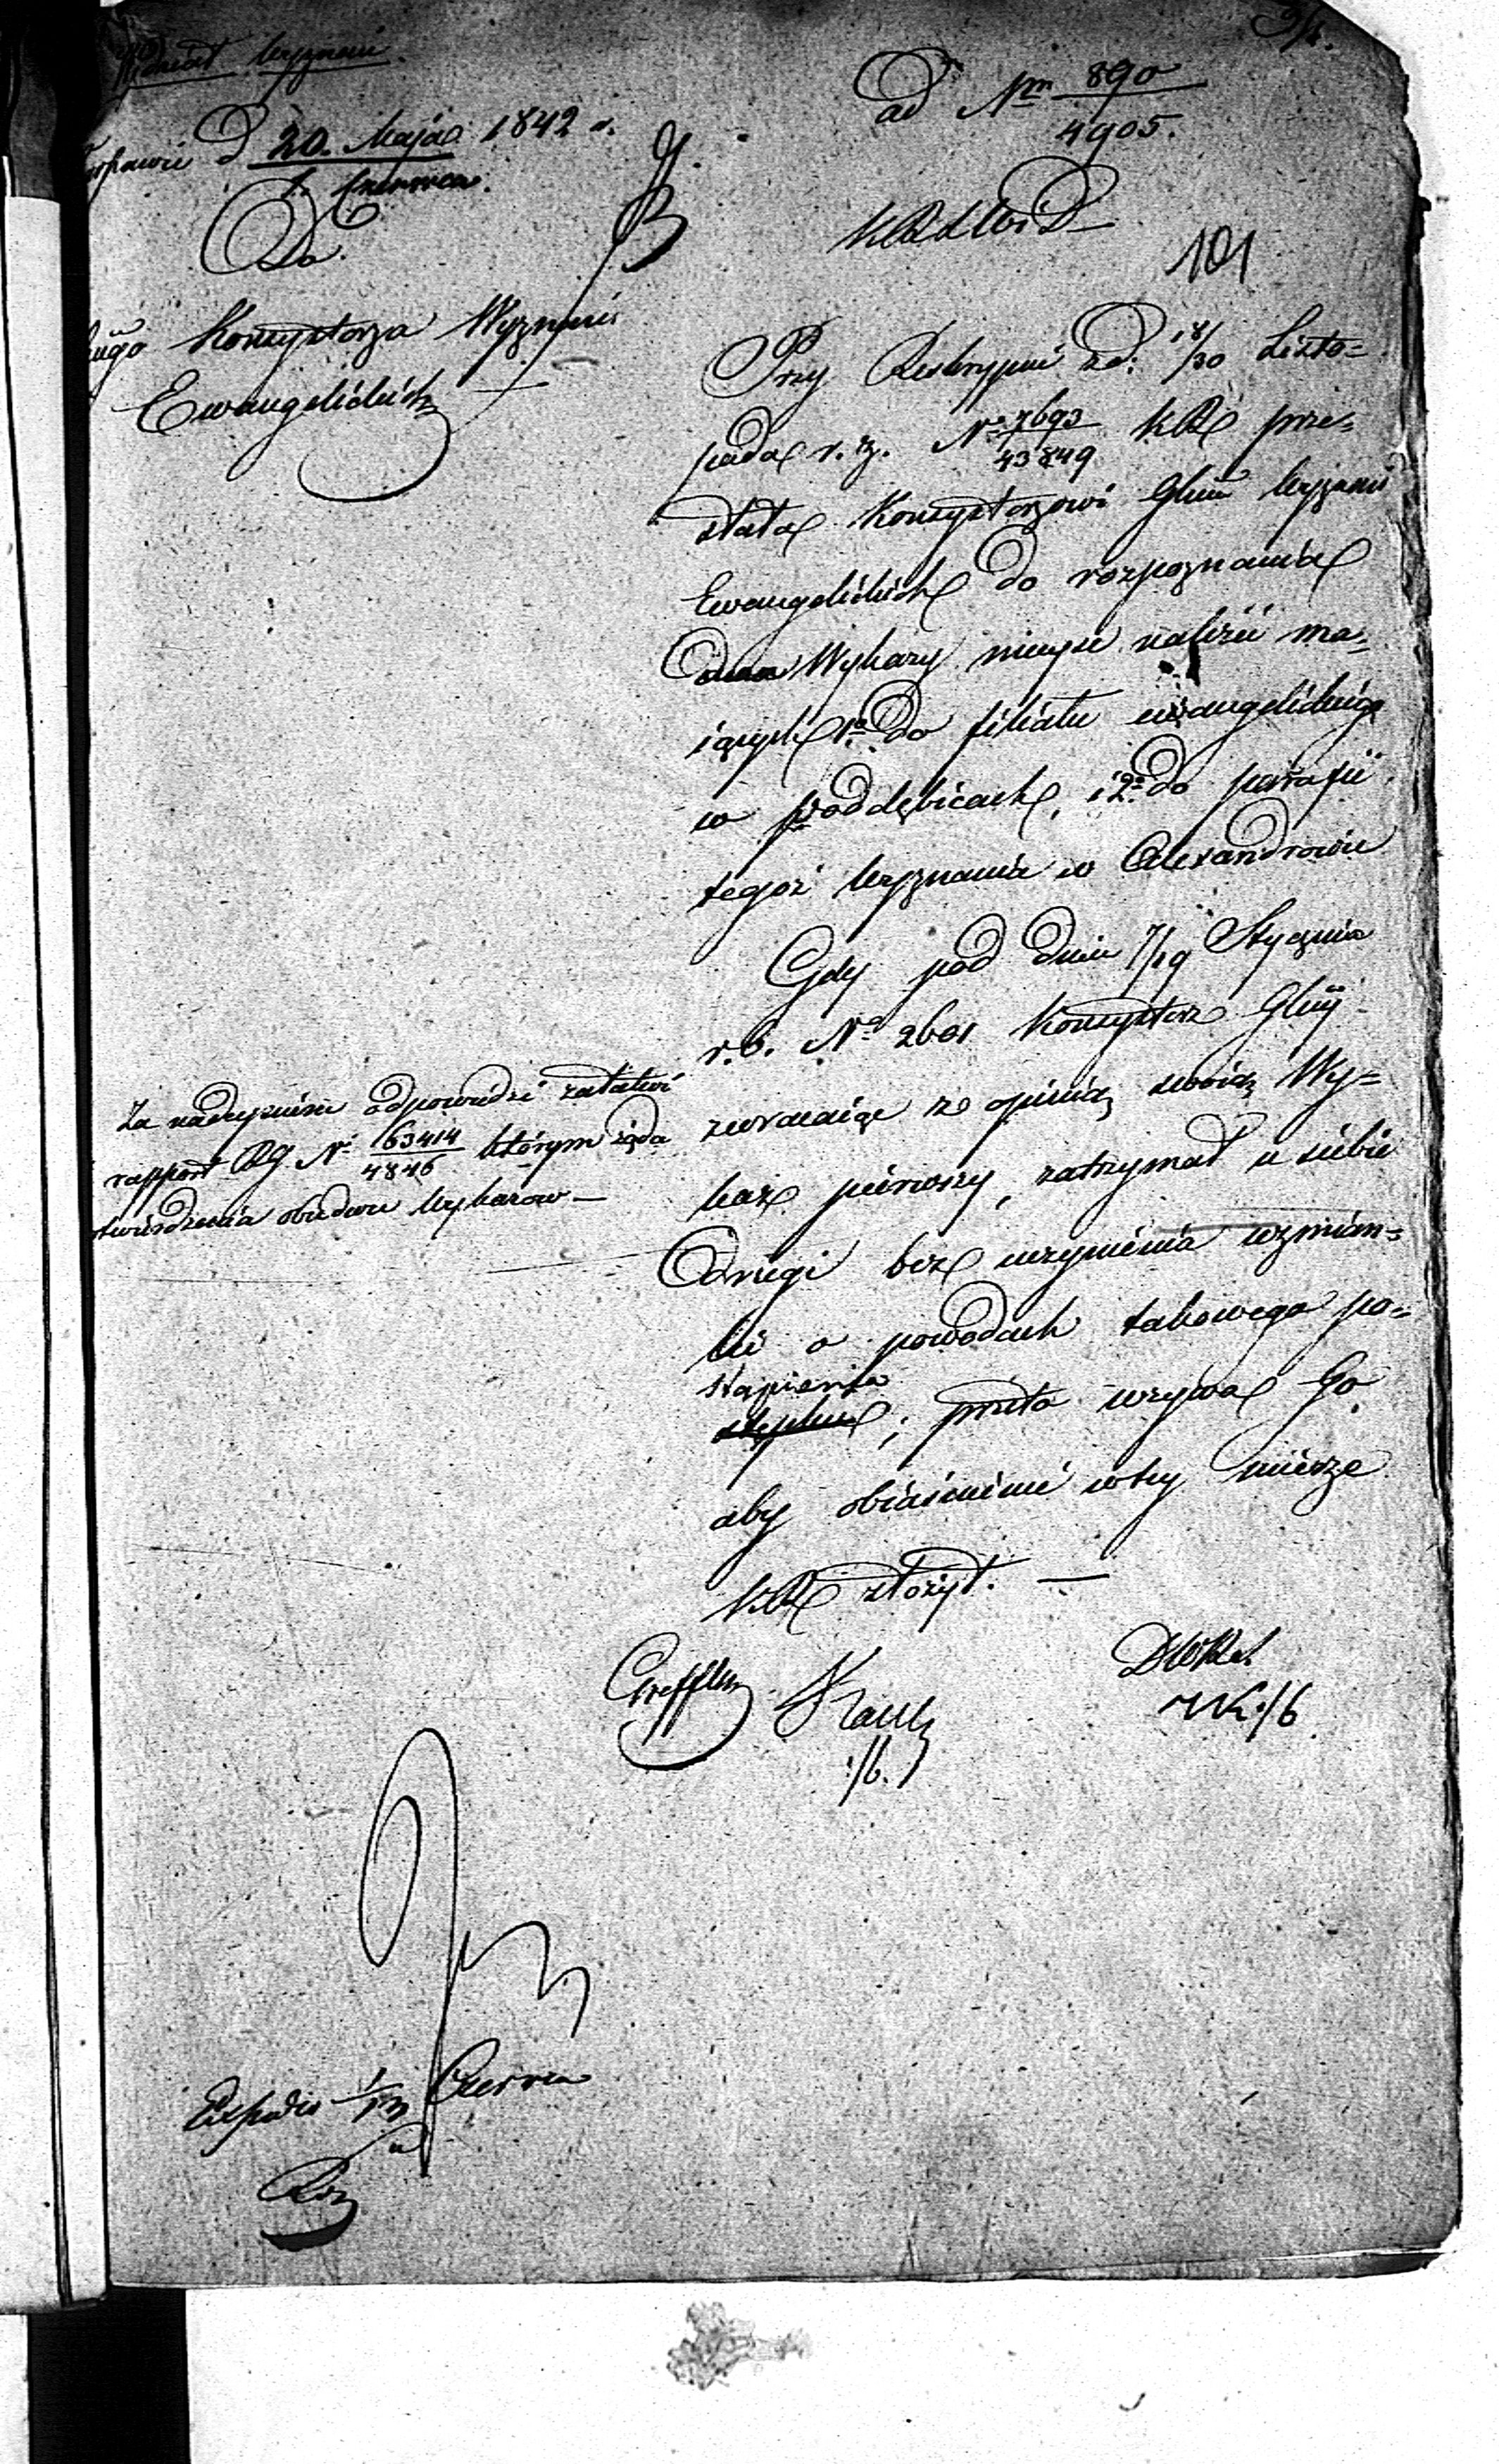 Wydział Wyznań.
d 20. Maja 1842 r.
1. Czerwca.
Do
Konsystorza Wyznań
Ewangelickich
ad Nrm 890
4905.
101
Przy Reskrypcie z d: 18/30 Listo=
pada r. z. No 7693
43849 KR prze=
słała Konsystorzowi Głmu Wyznań
Ewangelickich do rozpoznania
dwa Wykazy mieysc należeć ma=
iących 1o do filiału ewangelickiego
w Poddębicach, i 2o do parafii
tegoż Wyznania w Alexandrowie
Gdy pod dniem 7/19 Stycznia
r. b. No 2601 Konsystorz Głny
zwracaiąc ze opinią swoią Wy=
kaz pierwszy, zatrzymał u siebie
drugi bez uczynienia wzmian=
ki o powodach takowego po=
stąpienia
; przeto wzywa Go
aby obiaśnienie w tey mierze
KR złożył. —
Za nadeyściem odpowiedzi załatwi
rapport RG No 63414
4846 którym żąda
twierdzenia obudwu Wykazów —
1/6.
1/6
1/13 Czerwca